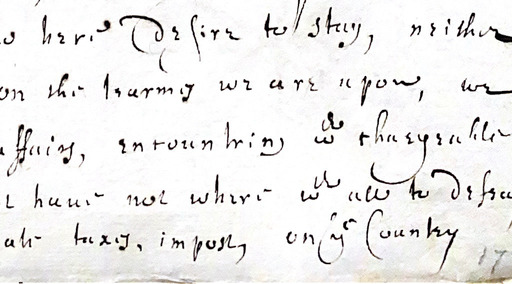 here desire to stay, neither
on the tearmes we are upon, we
affairs, encountring wth chargeable
have not where wth all to defra
taxes, impost, on ye Country
17